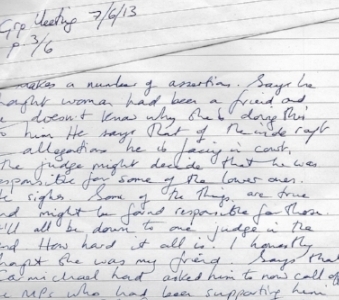 Grp Meeting 7/6/13
p 3/6
makes a number of assertions. Says he
thought woman had been a friend and
doesn't know why she is doing this
to him He says that of the
allegations he is facing in court,
The judge might decide that he was
responsible for some of the lower ones.
He sighs Some of the things are true
and might be found responsible for those.
It'll all be down to one judge in the
end How hard it all is. I honestly
thought she was my friend. Says that
Carmichael had asked him to now call off
the MPs who had been supporting him